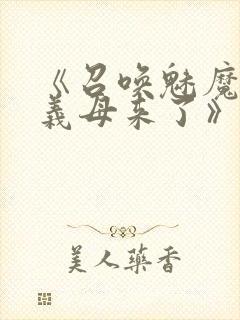 《召唤魅魔
義母来了》
美人藥香